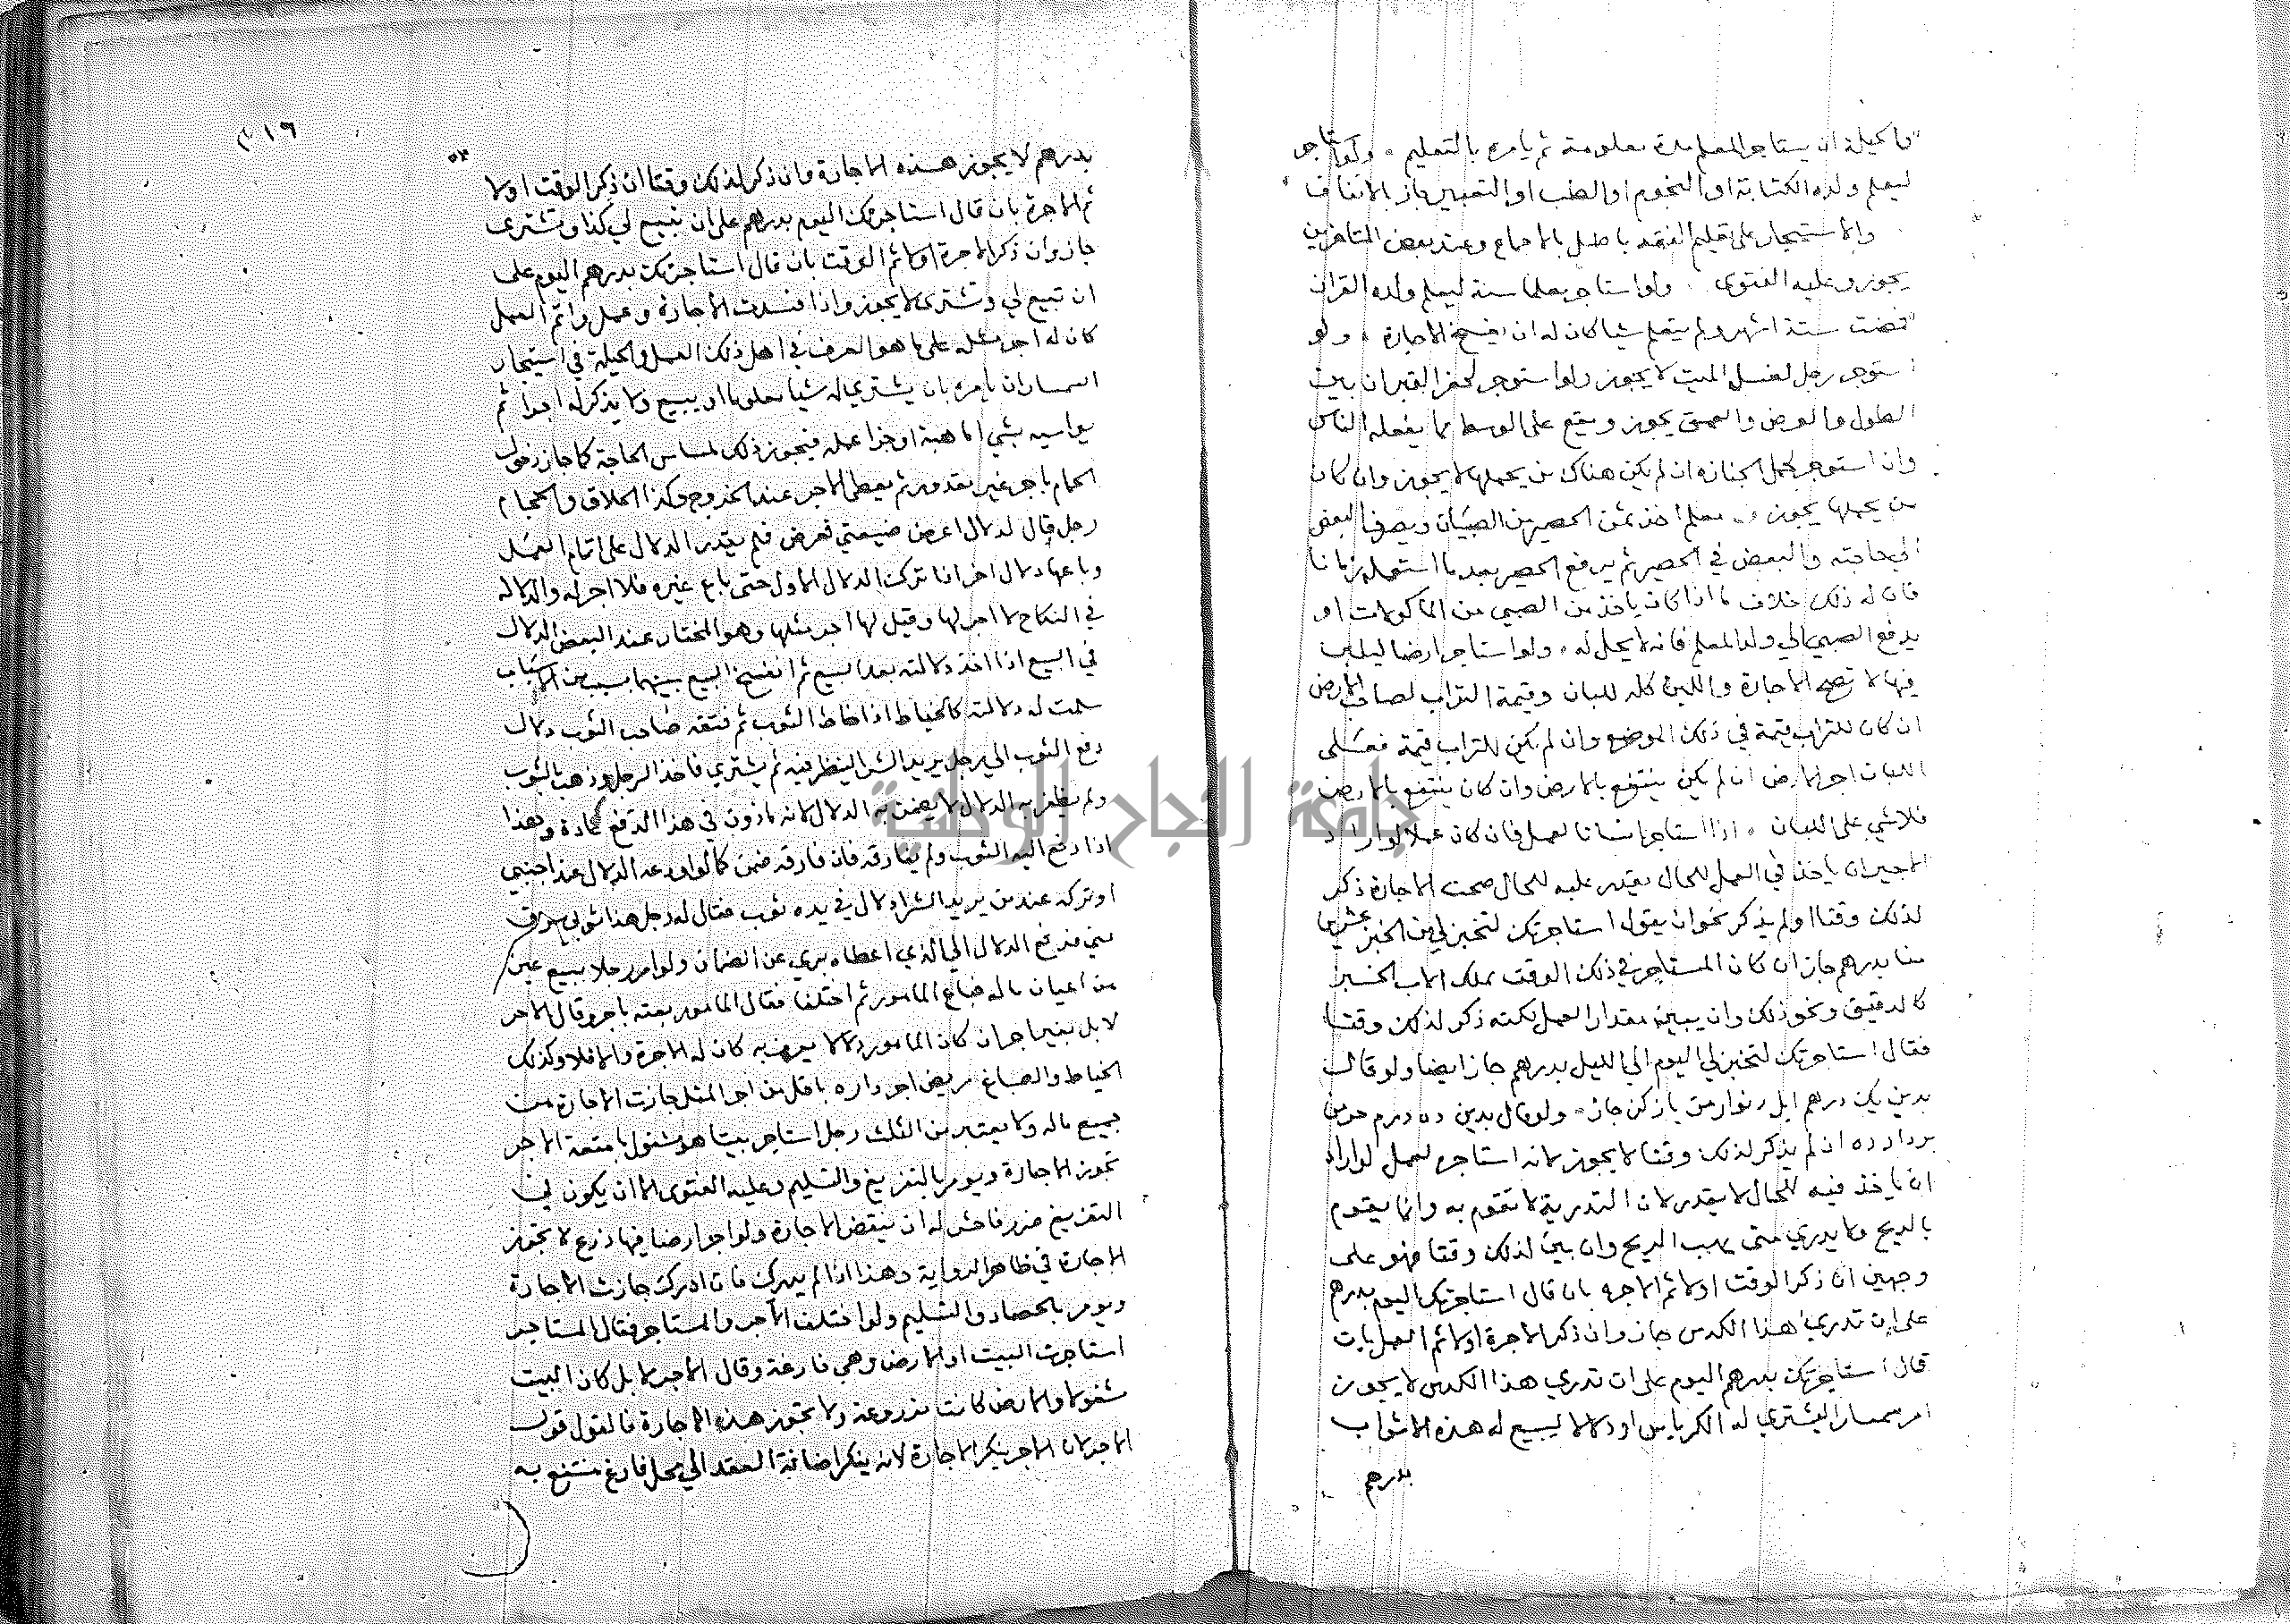 والحيلة ان يستاجر المعلم مدة معلومة ثم يامره بالتعليم . ولو استاجر
ليعلم ولده الكتابة او النجوم او الطب او التعبير جاز بالاتفاق
والاستيجار على تعليم الفقه باطل بالاجماع وعند بعض المتاخرين
يجوز وعليه الفتوى . ولو استاجر معلما سنة ليعلم ولده القران
فمضت ستة اشهر ولم يتعلم شيا كان له ان يفسخ الاجارة . ولو
استوجر رجل لغسل الميت لا يجوز ولو استوجر لحفر القبر ان بين
الطول والعرض والعمق يجوز ويقع على الوسط مما يفعله الناس
وان استوجر لحمل الجنازه ان لم يكن هناك من يحملها لا يجوز وان كان
من يحملها يجوز معلم اخذ ثمن الحصير من الصبيان ويصرف البعض
الى حاجته والبعض في الحصير ثم يرفع الحصير بعد ما استعمله زمانا
فان له ذلك خلاف ما اذا كان ياخذ من الصبي من الماكولات او
يدفع الصبي الي ولد المعلم فانه لا يحل له . ولو استاجر ارضا ليلبن
فيها لا تصح الاجارة واللبن كله للبان وقيمة التراب لصاحب الارض
ان كان للتراب قيمة في ذلك الموضع وان لم يكن للتراب قيمة فعلى
اللبان اجر الارض ان لم يكن ينتفع بالارض وان كان ينتفع بالارض
فلا شي على اللبان . اذا استاجر انسانا لعمل فان كان عملا لو اراد
الاجير ان ياخذ في العمل للحال يقدر عليه للحال صحت الاجارة ذكر
لذلك وقتا اولم يذكر نحو ان يقول استاجرتك لتخبز لي من الخبز عشرين
منا بدرهم جاز ان كان المستاجر في ذلك الوقت يملك الاب الخبز
كالدقيق ونحو ذلك وان يبين مقدار العمل لكنه ذكر لذلك وقتا
فقال استاجرتك لتخبز لي اليوم الي الليل بدرهم جاز ايضا ولو قال
بدين يكن درهم ابل من باز كن جاز . ولو قال بدين ده درم
ان لم يذكر لذلك وقتا لا يجوز لانه استاجره لعمل لو اراد
ان ياخذ فيه للحال لا يقدر لان التذرية لا تقوم به وانما يقوم
بالريح ولا يدري متى يهب الريح وان بين لذلك وقتا فهو على
وجهين ان ذكر الوقت اولا ثم الاجره بان قال استاجرتك اليوم بدرهم
على ان تدري هذا الكدس جاز وان ذكر الاجرة اولا ثم العمل بان
قال استاجرتك بدرهم اليوم على ان تدري هذا الكدس لا يجوز
امر سمسارا ليشتري له الكرباس او دلالا ليبيع له هذه الاثواب
بدرهم
٣١٦
بدرهم لا يجوز هذه الاجارة وان ذكر لذلك وقتا ان ذكر الوقت اولا
ثم الاجرة بان قال استاجرتك اليوم بدرهم على ان تبيع لي كذا وتشترى
جاز وان ذكر الاجرة اولا ثم الوقت بان قال استاجرتك بدرهم اليوم على
ان تبيع لي وتشترى لا يجوز واذا فسدت الاجارة وعمل واتم العمل
كان له اجر مثله على ما هو العرف في اهل ذلك العمل والحيلة في استيجار
السمسار ان يامره بان يشتري له شيا معلوما او يبيع ولا يذكر له اجرا ثم
يواسيه بشي اما هبة او جزا عمله فيجوز ذلك لمساس الحاجة كما جاز دخول
الحمام باجر غير مقدر ثم يعطي الاجر عند الخروج وكذا الحلاق والحجام
رجل قال لدلال اعرض ضيعتي فعرض فلم يقدر الدلال على اتمام العمل
وباعها دلال اخر انما ترك الدلال الاول حتى باع غيره فلا اجر له والدلاله
في النكاح لا اجر لها وقيل لها اجر مثلها وهو المختار عند البعض الدلال
في البيع اذا اخذ دلالته بعد البيع ثم انفسخ البيع بينهما بسبب من الاسباب
سلمت له دلالته كالخياط اذا خاط الثوب ثم فتقه صاحب الثوب دلال
دفع الثوب الي رجل يريد الشرا لينظر فيه ثم يشتري فاخذ الرجل وذهب بالثوب
ولم يظفر به الدلال لا يضمن به الدلال لانه ماذون في هذا الدفع عادة وهذا
اذا دفع اليه الثوب ولم يفارقه فان فارقه ضمن كما لو اودعه الدلال عند اجنبي
او تركه عند من يريد الشرا دلال في يده ثوب فقال له رجل هذا ثوبي سرق
مني فدفع الدلال الي الذي اعطاه بري عن الضمان ولو امر رجلا ببيع عين
من اعيان ماله فباع المامور ثم اختلفا فقال المامور بعته باجر وقال الامر
لا بل بغير اجر ان كان المامور دلالا يعرف به كان له الاجرة والا فلا وكذلك
الخياط والصباغ مريض اجر داره باقل من اجر المثل جازت الاجارة من
جميع ماله ولا يعتبر من الثلث رجل استاجر بيتا هو مشغول بامتعة الاجر
تجوز الاجارة ويومر بالتفريغ والتسليم وعليه الفتوى الا ان يكون في
التفريغ ضرر فاحش له ان ينقض الاجارة ولو اجر ارضا فيها زرع لا تجوز
الاجارة في ظاهر الرواية وهذا اذا لم يدرك فان ادرك جازت الاجارة
ويومر بالحصاد والتسليم ولو اختلف الآجر والمستاجر فقال المستاجر
استاجرت البيت او الارض وهي فارغة وقال الاجر لا بل كان البيت
مشغولا والارض كانت مزروعة ولا تجوز هذه الاجارة فالقول قول
الاجر لان الاجر ينكر الاجارة لانه ينكر اضافة العقد الي محل فارغ منتفع به
جامعة النجاح الوطنية